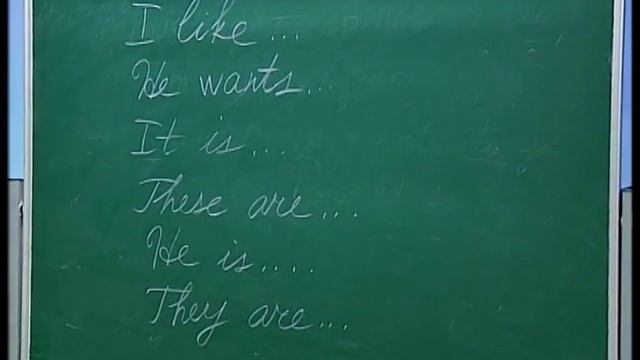 I like...
He wants...
It is...
These are...
He is....
They are...